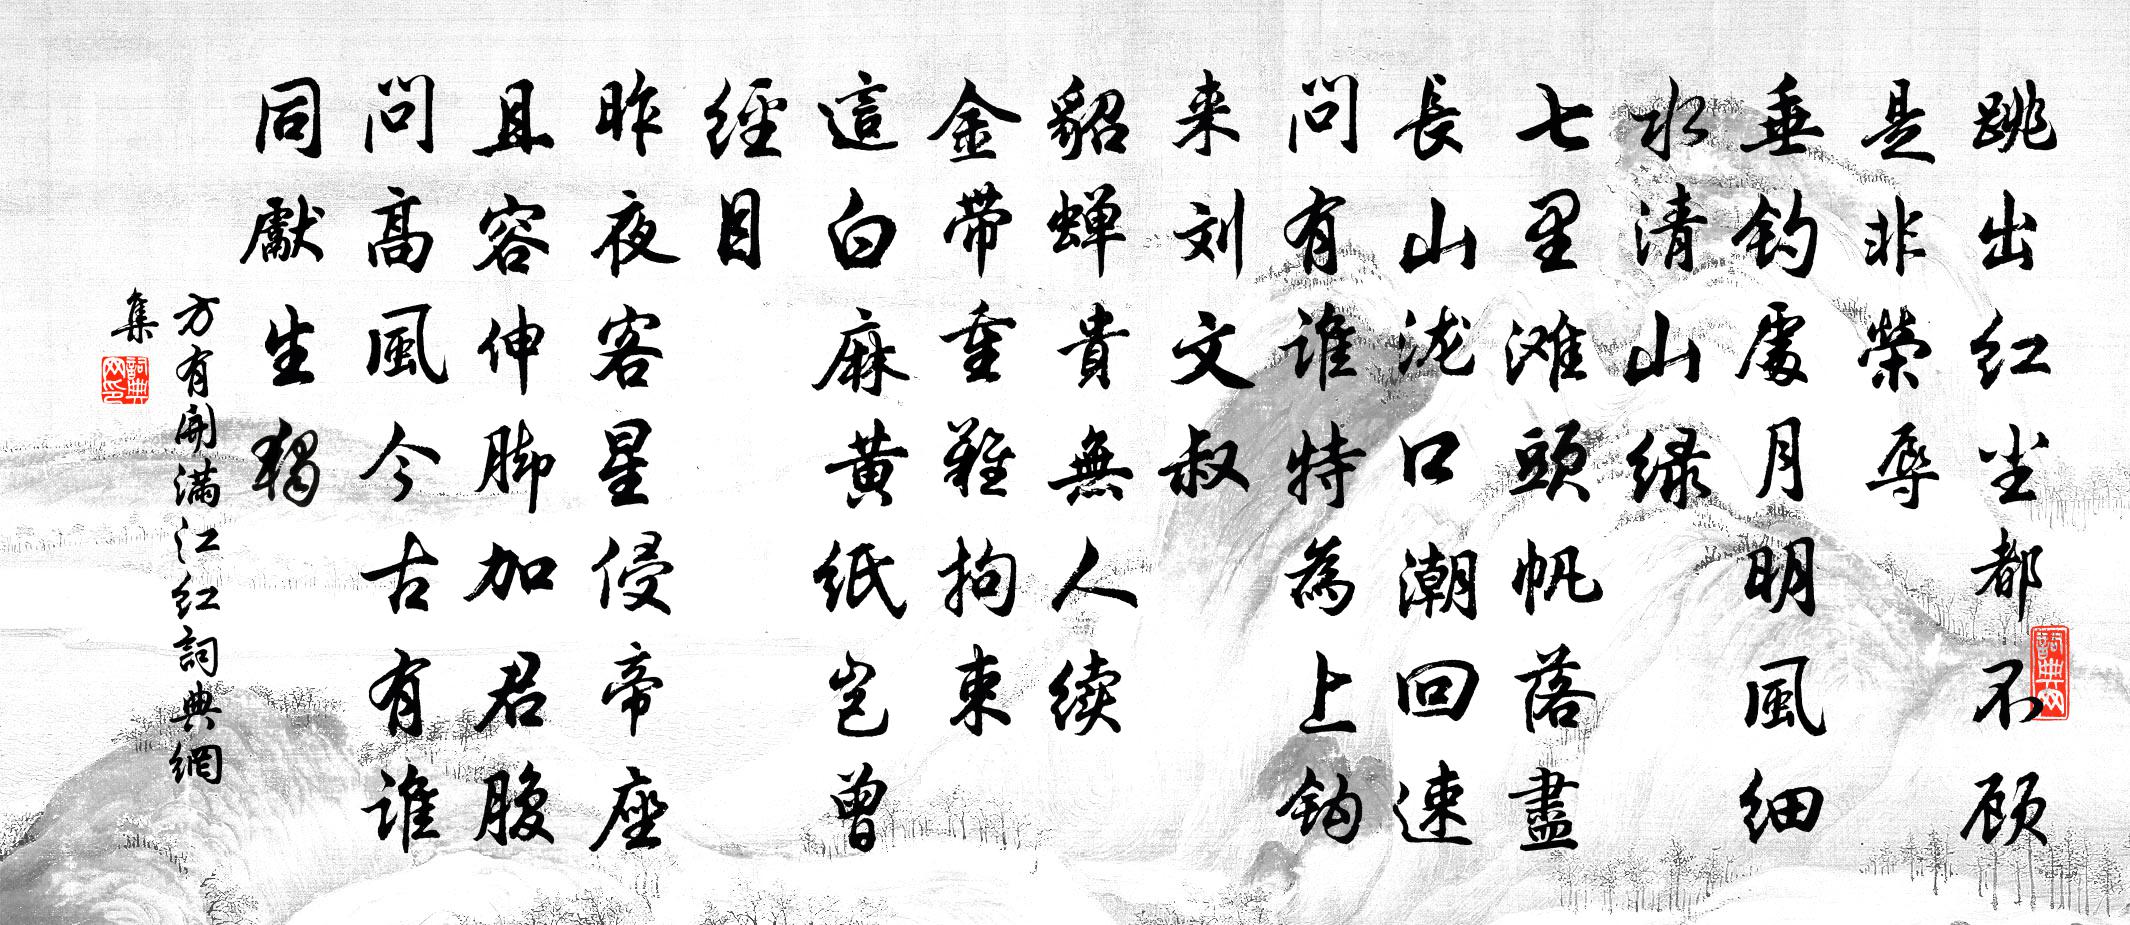 跳出红尘都不顾
是非榮辱
垂钓處月明風细
水清山绿
七里滩頭帆落盡
長山泷口潮回速
问有谁特為上钩
来刘文叔
貂蝉貴無人续
金带重難拘束
這白麻黄纸岂曾
經目
昨夜客星侵帝座
且容伸脚加君腹
问高風今古有谁
同獻生獨
方有開满江红詞典網
集
詞典网印
詞典网